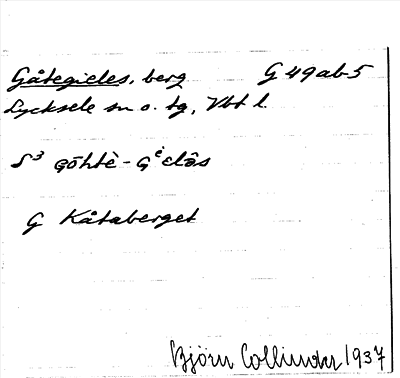 Gåtegieles, berg G 49ab5
Lycksele sn o. tg, Vbt l.
S³ Gōhtè-Gèelâs
G Kåtaberget
Björn Collinder 1937